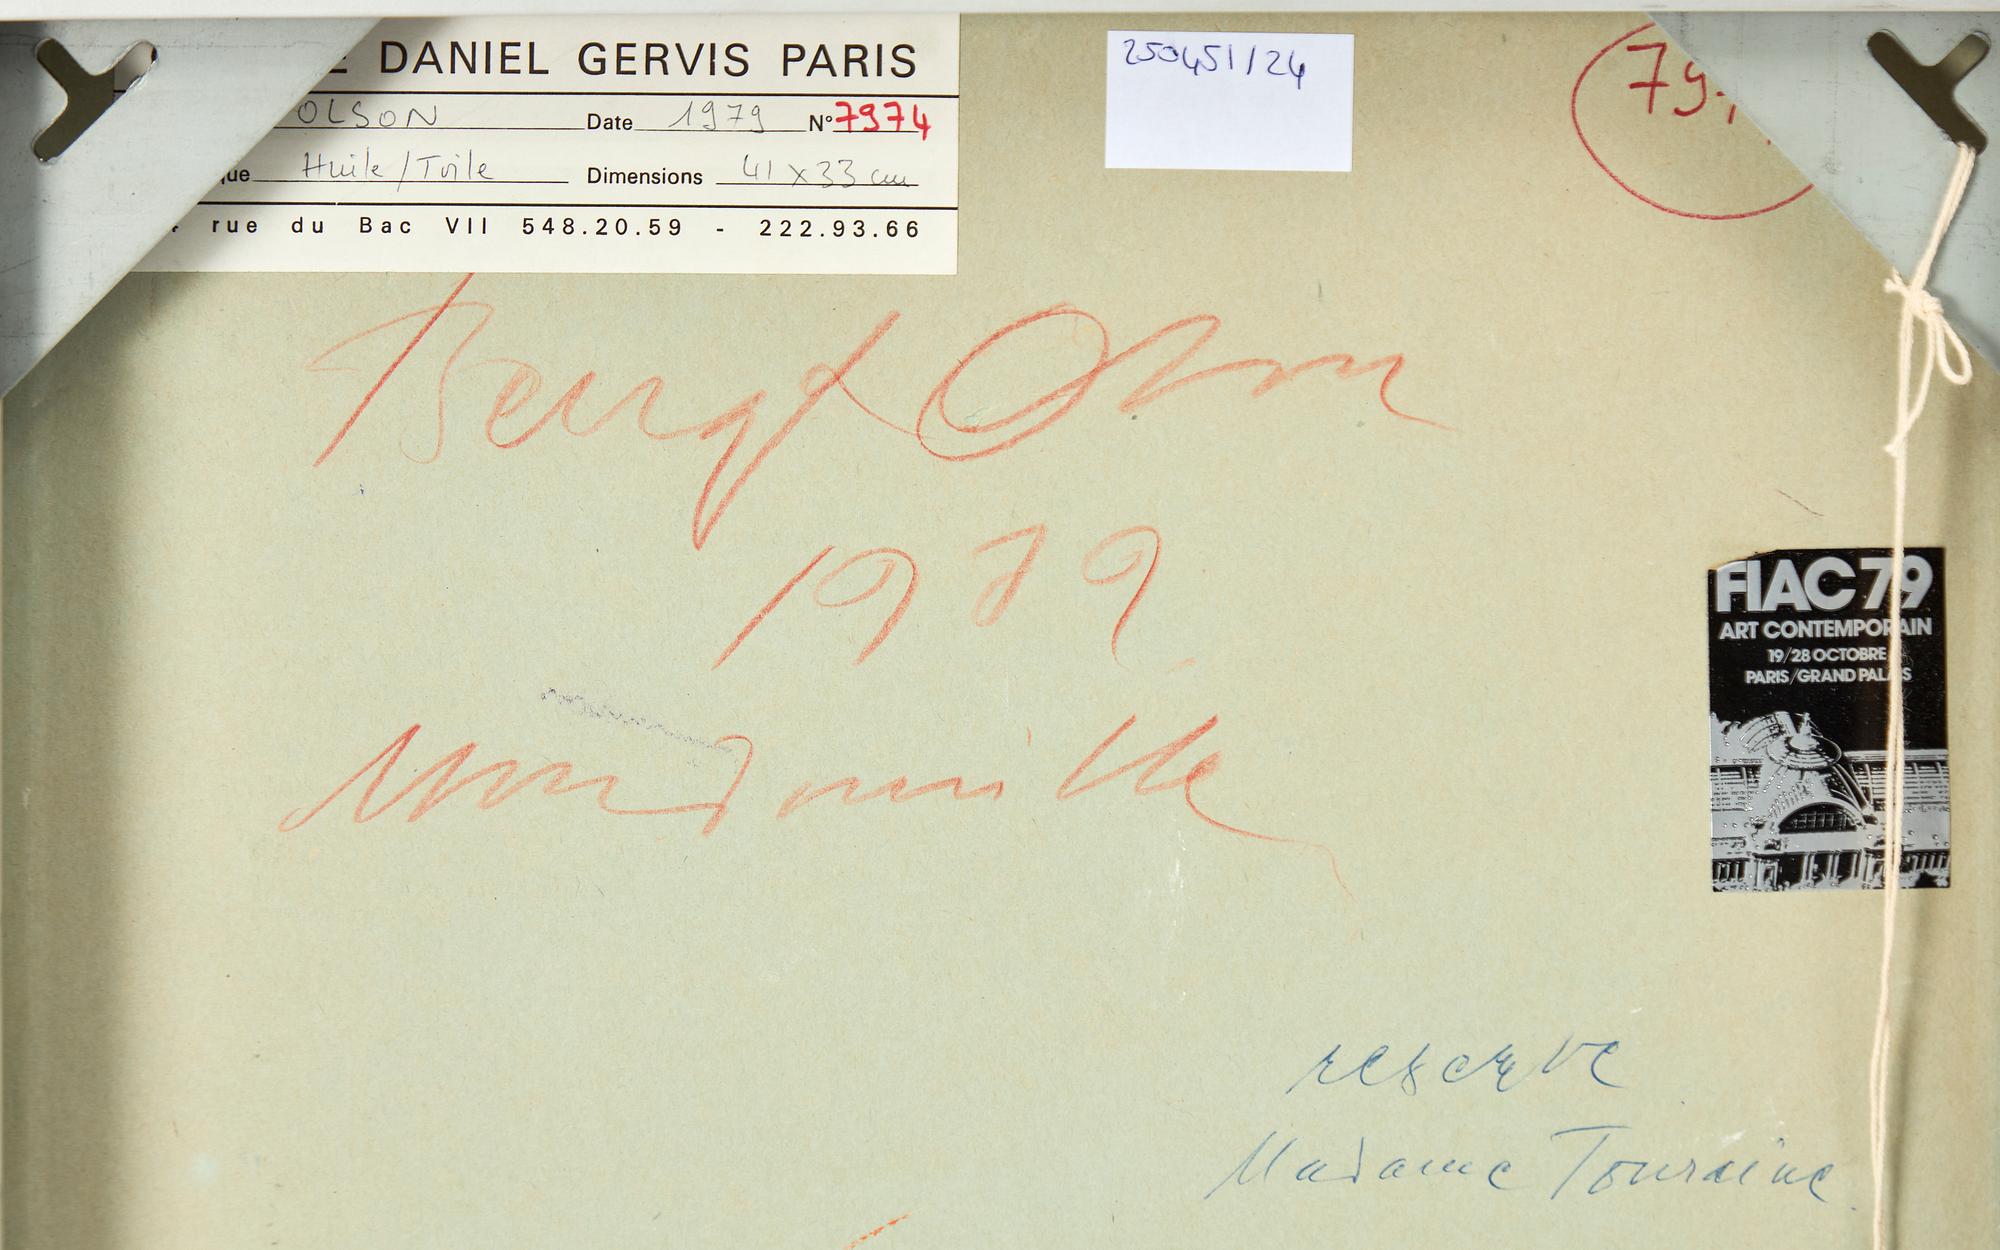 DANIEL GERVIS PARIS
OLSON Date 1979 N° 7974
Huile/Toile Dimensions 41 x 33 cm
rue du Bac VII 548.20.59 - 222.93.66
250451/24
Bengt Olson
1979
FIAC 79
ART CONTEMPORAIN
19/28 OCTOBRE
PARIS/GRAND PALAIS
reserve
Madame Touraine